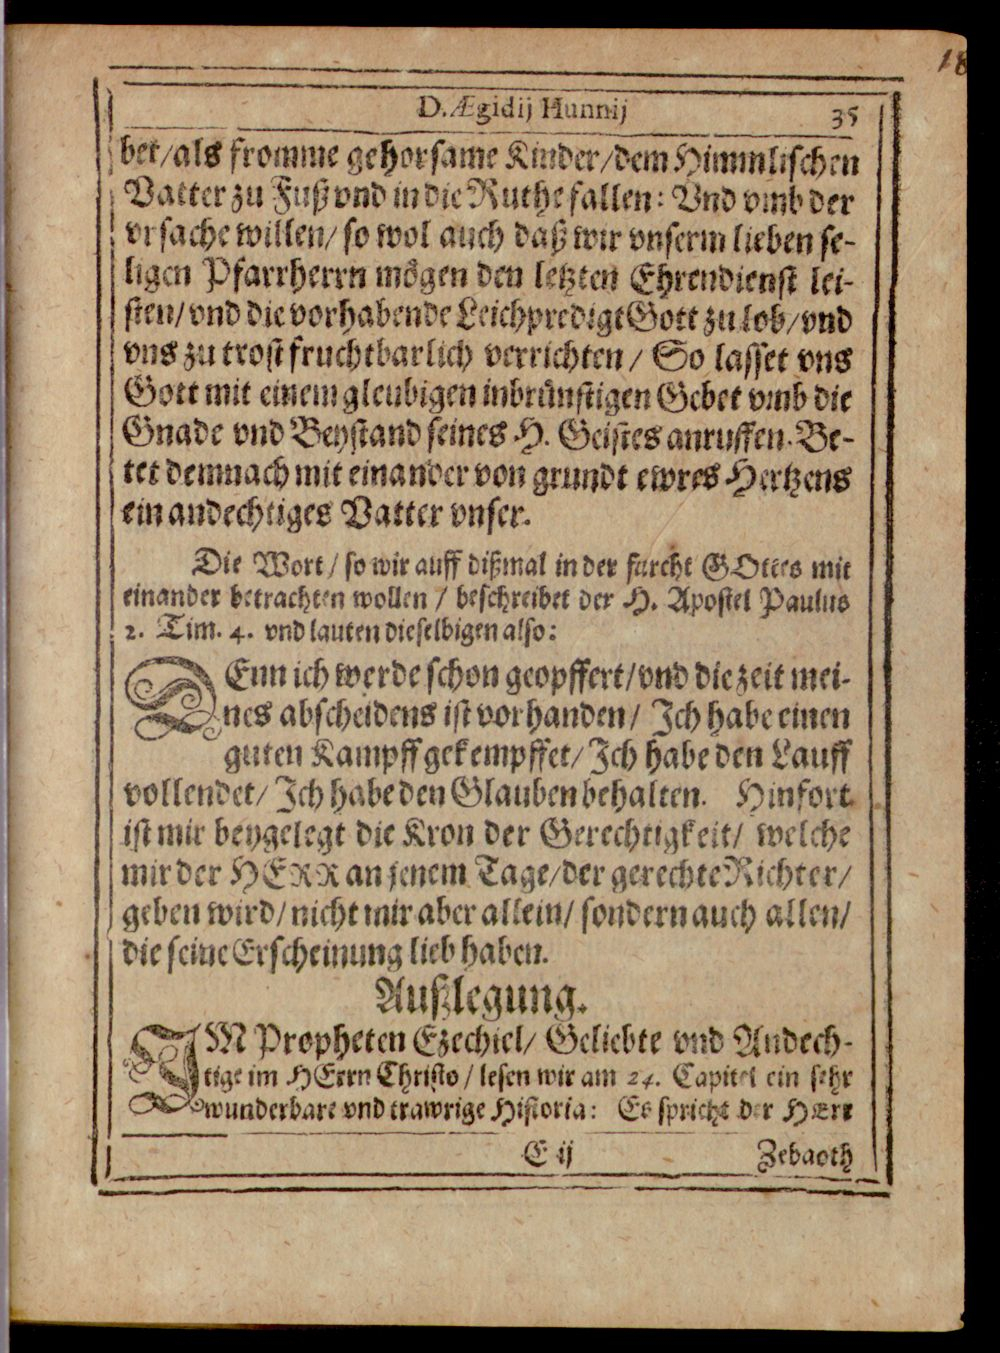 18
D. Ægidij Hunnij 35
bet/als fromme gehorsame Kinder/dem Himmlischen
Vatter zu Fuß vnd in die Ruthe fallen: Vnd vmb der
vrsache willen/ so wol auch daß wir vnserm lieben se-
ligen Pfarrherrn mögen den letzten Ehrendienst lei-
sten/ vnd die vorhabende Leichpredigt Gott zu lob/ vnd
vns zu trost fruchtbarlich verrichten/ So lasset vns
Gott mit einem gleubigen inbrünstigen Gebet vmb die
Gnade vnd Beystand seines H. Geistes anruffen. Be-
tet demnach mit einander von grundt ewres Hertzens
ein andechtiges Vatter vnser.
Die Wort/ so wir auff dißmal in der furcht GOttes mit
einander betrachten wollen/ beschreibet der H. Apostel Paulus
2. Tim. 4. vnd lauten dieselbigen also:
DEnn ich werde schon geopffert/vnd die zeit mei-
nes abscheidens ist vorhanden/ Ich habe einen
guten Kampff gekempffet/ Ich habe den Lauff
vollendet/ Ich habe den Glauben behalten. Hinfort
ist mir beygelegt die Kron der Gerechtigkeit/ welche
mir der HERR an jenem Tage/der gerechte Richter/
geben wird/ nicht mir aber allein/ sondern auch allen/
die seine Erscheinung lieb haben.
Außlegung.
IM Propheten Ezechiel/ Geliebte vnd Andech-
tige im HErrn Christo/ lesen wir am 24. Capitel ein sehr
wunderbare vnd trawrige Historia: Es spricht der HErr
E ij Zebaoth